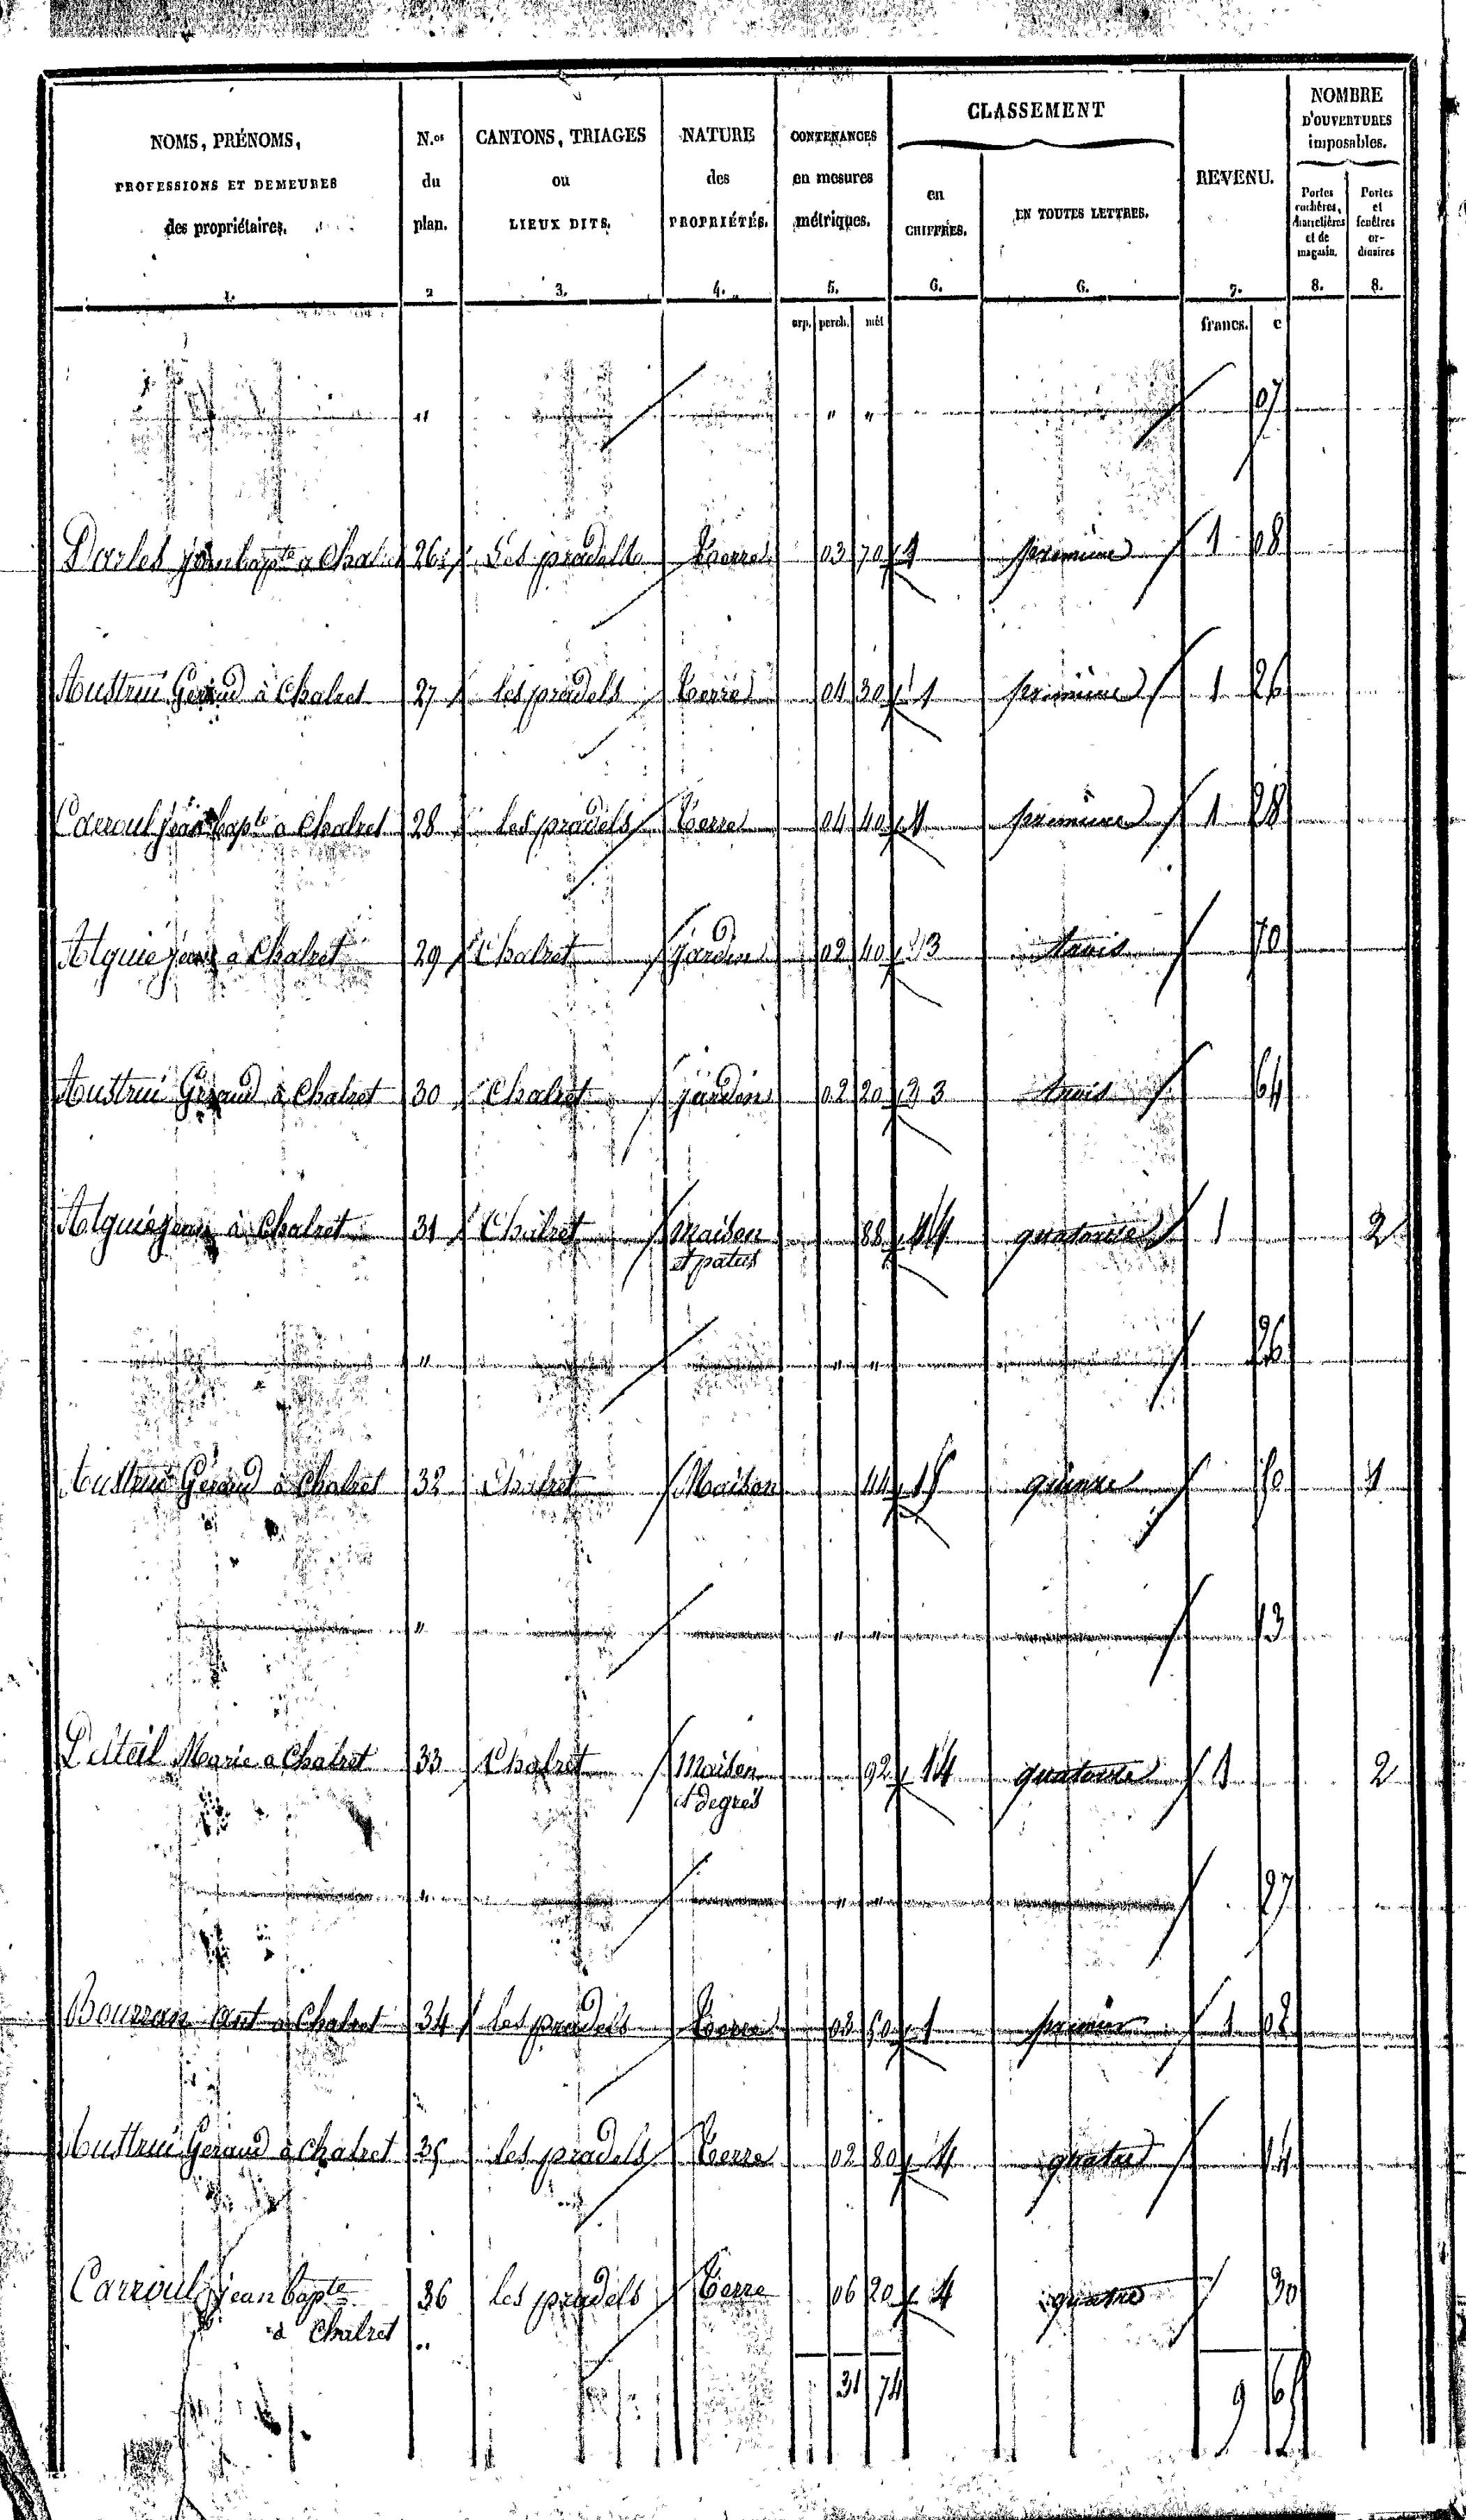 NOMS, PRÉNOMS, PROFESSIONS ET DEMEURES des propriétaires. N.os du plan. CANTONS, TRIAGES ou LIEUX DITS. NATURE des PROPRIÉTÉS. CONTENANCES en mesures métriques. CLASSEMENT en CHIFFRES. EN TOUTES LETTRES. REVENU. NOMBRE D'OUVERTURES imposables. Portes cochères, charretières et de magasin. Portes et fenêtres ordinaires
1. 2 3. 4. 5. 6. 6. 7. 8. 8.
arp. perch. mèt francs. c
" " " 07
Darles jean bapte a Chal 26 Les pradells Terre 03 70 1 première 1 08
Austrui Geraud à Chalret 27 les pradels Terre 04 30 1 première 1 26
Carroul jean bapte a Chalret 28 les pradels Terre 04 40 1 première 1 28
Alquie jean a Chalret 29 Chalret jardin 02 40 3 trois 70
Austrui Géraud à Chalret 30 Chalret jardin 02 20 3 trois 64
Alquie jean à Chalret 31 Chalret maison 88 14 quatorze 1 2
et patus
" " " 26
Austrui Géraud à Chalret 32 Chalret Maison 44 15 quinze 50 1
" " " 13
Delteil Marie a Chalret 33 Chalret maison 92 14 quatorze 1 2
et degrés
" " " 27
Bourran ant a Chalret 34 les pradels Terre 03 50 1 première 1 02
Austrui Geraud à Chalret 35 les pradels Terre 02 80 4 quatre 14
Carroul jean bapte 36 les pradels Terre 06 20 4 quatre 30
à Chalret
31 74 9 65